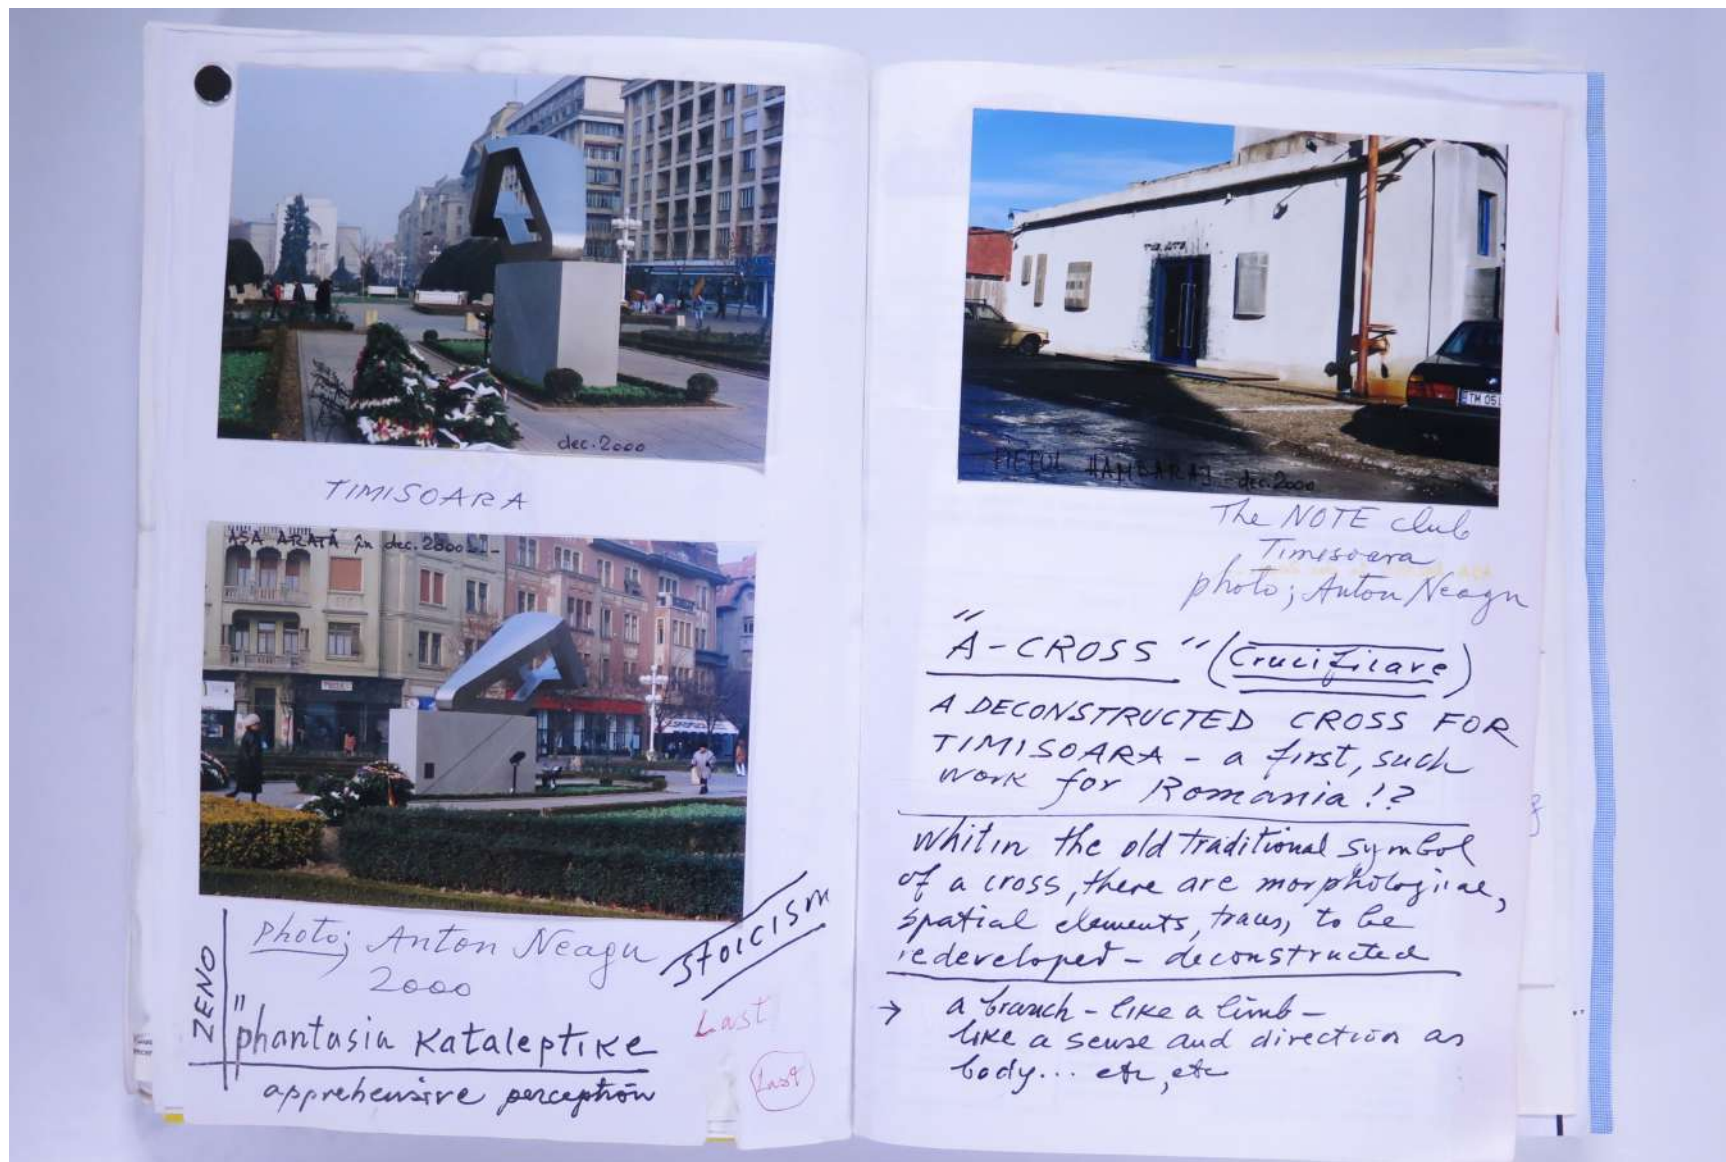 dec. 2000
TIMISOARA
AȘA ARATĂ în dec. 2000
photo; Anton Neagu
2000
STOICISM
ZENO
"phantasia Kataleptike
apprehensive perception
Last
Last
TM 05
dec. 2000
The NOTE club
Timisoara
photo; Anton Neagu
"A-CROSS" (Crucificare)
A DECONSTRUCTED CROSS FOR
TIMISOARA - a first, such
work for Romania!?
Whitin the old traditional symbol
of a cross, there are morphological,
spatial elements, traces, to be
redeveloped - deconstructed
→ a branch - like a limb -
like a sense and direction as
body... etc, etc